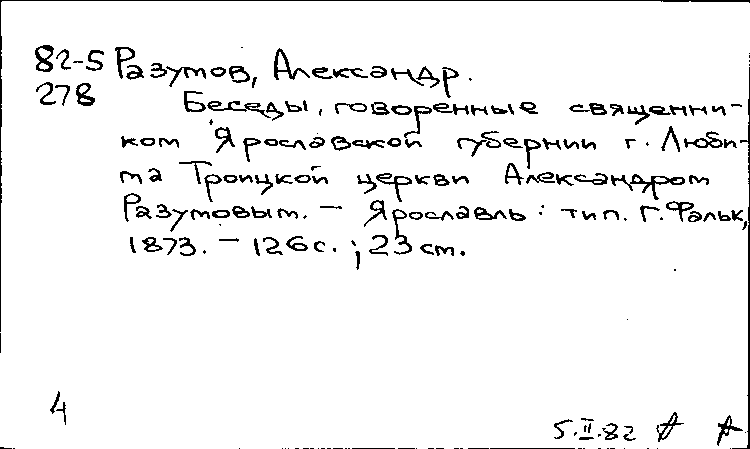 82-5 Разумов, Александр.
278 Беседы, говоренные священни-
ком Ярославской губернии г. Люби-
ма Троицкой церкви Александром
Разумовым. — Ярославль: тип. Г. Фальк,
1873. — 126 с.; 23 см.
4
5.II.82